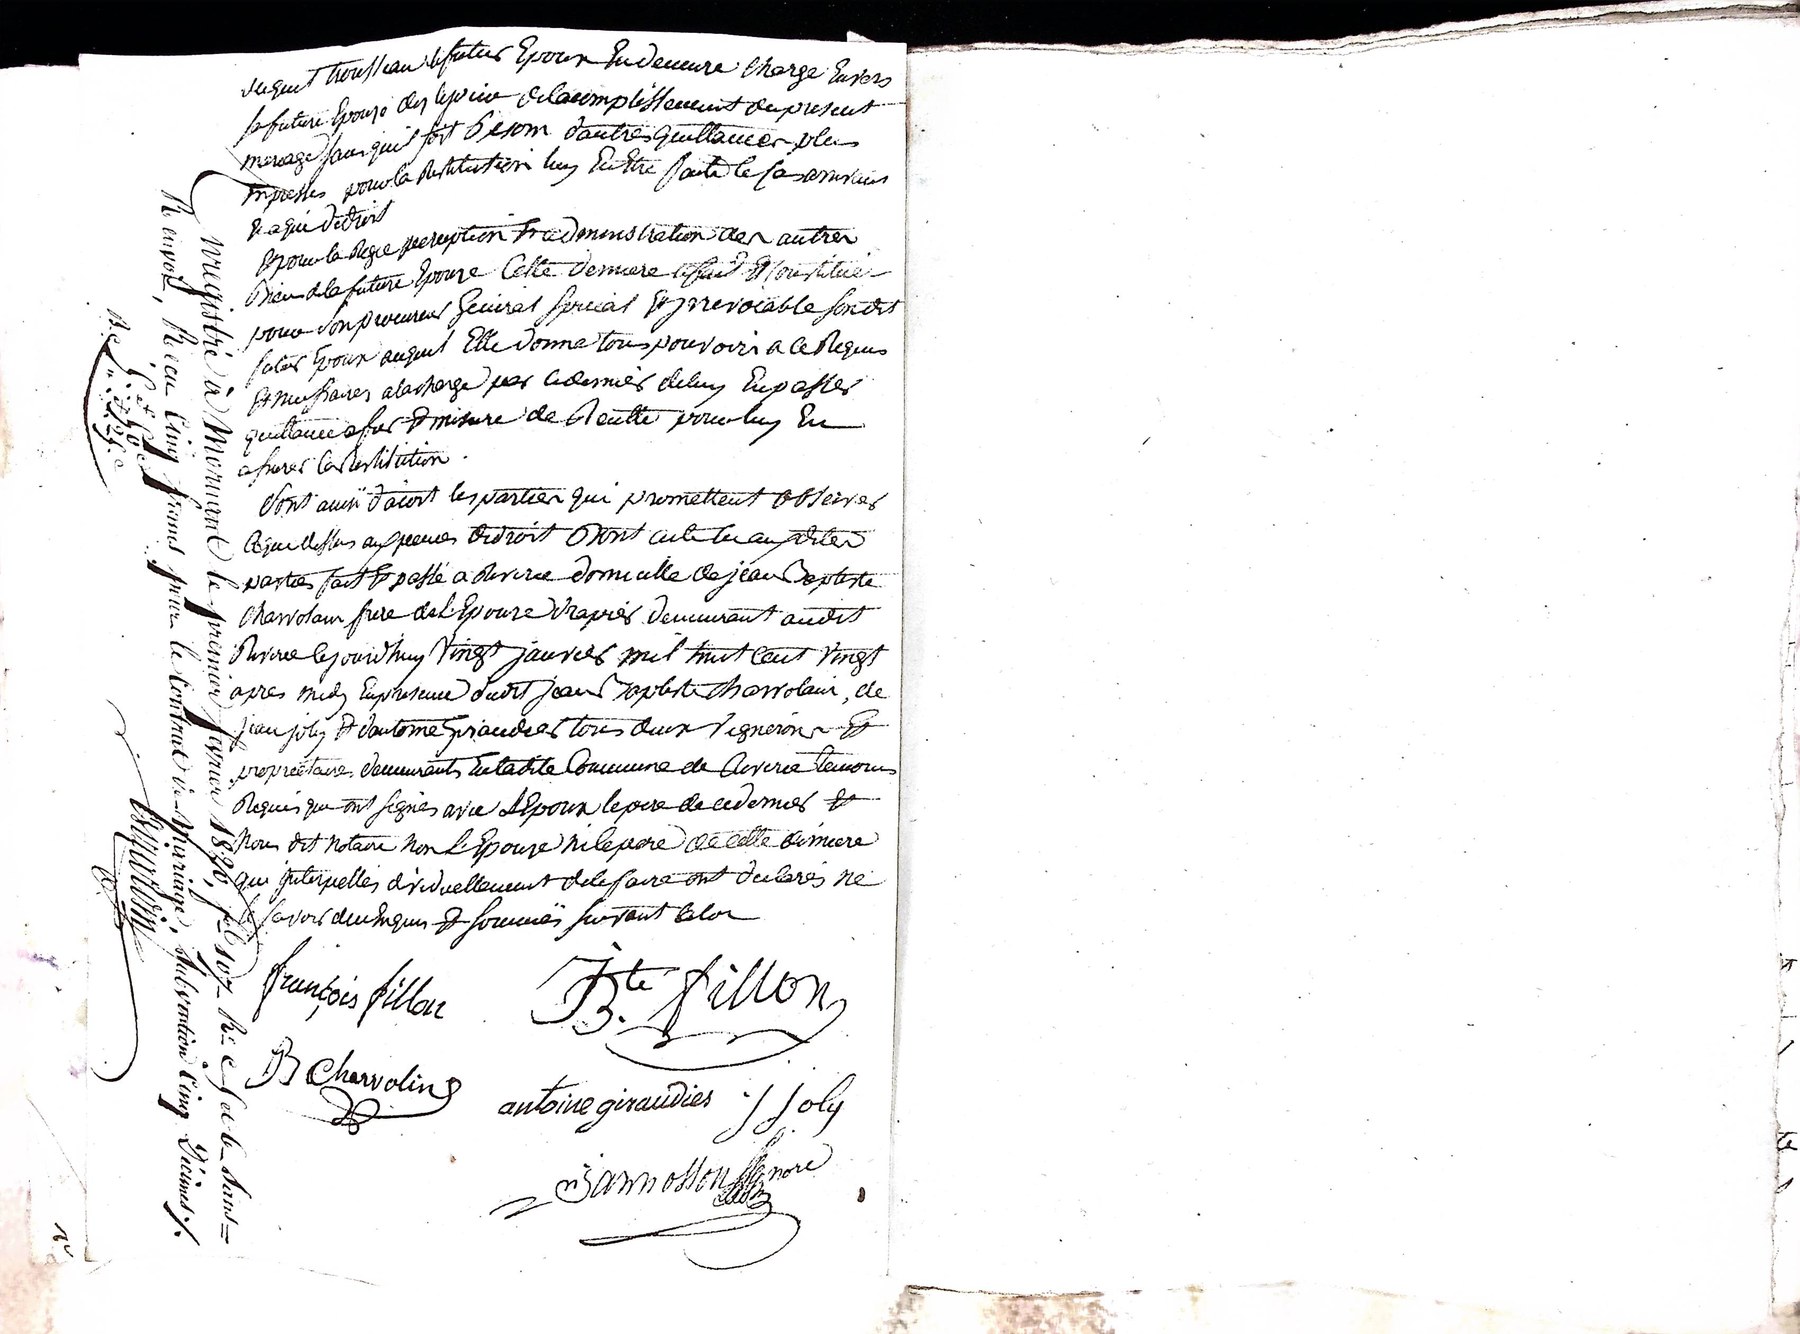 duquel trousseau le futur Epoux En demeure charge Envers
sa future Epouze des le jour de lacomplissement du present
mariage sans quil soit besoin dautres quittances plus
Expresses pour la Restitution luy En Etre faite le cas arrivant
Et a qui de droit
Et pour la Regie perception Et administration des autres
Biens de la future Epouze Cette derniere a fait Et Constitué
pour son procureur General special Et jrrevocable son dit
futur Epoux auquel Elle donne tous pouvoirs a ce Requis
Et necessaires a la charge par ce dernier de luy En passer
quittance a fur Et mesure de Recette pour luy En
assurer la Restitution .
Dont ainsi d'acort les parties qui promettent observer
ce que dessus aux peines de droit Dont acte lu aux dites
parties fait Et passé a Riverie domicille de jean Baptiste
Charvolain frere de l'Epouze drapier demeurant audit
Riverie le jourdhuy vingt janvier mil huit cent vingt
apres midy En presence dudit jean Baptiste charvolain, de
jean joly Et dantoine giraudier tous deux vignerons Et
proprietaires demeurants En ladite Commune de Riverie temoins
Requis qui ont signés avec L'Epoux le pere de ce dernier Et
Nous dit notaire Non L'Epouze ni le pere de cette derniere
qui jnterpellés dividuellement de le faire ont declarés ne
le savoir deux Enquis Et sommés suivant la loi
françois fillon
J Bte fillon
JB Charvolin
antoine giraudier
J Joly
Jannosson nore
Enregistré à Mornant le premier fevrier 1820, fol. 107 Rº C. 7 et 8. Sans
Renvoi, Reçu Cinq francs pour le Contrat de Mariage, Subvention Cinq Décimes